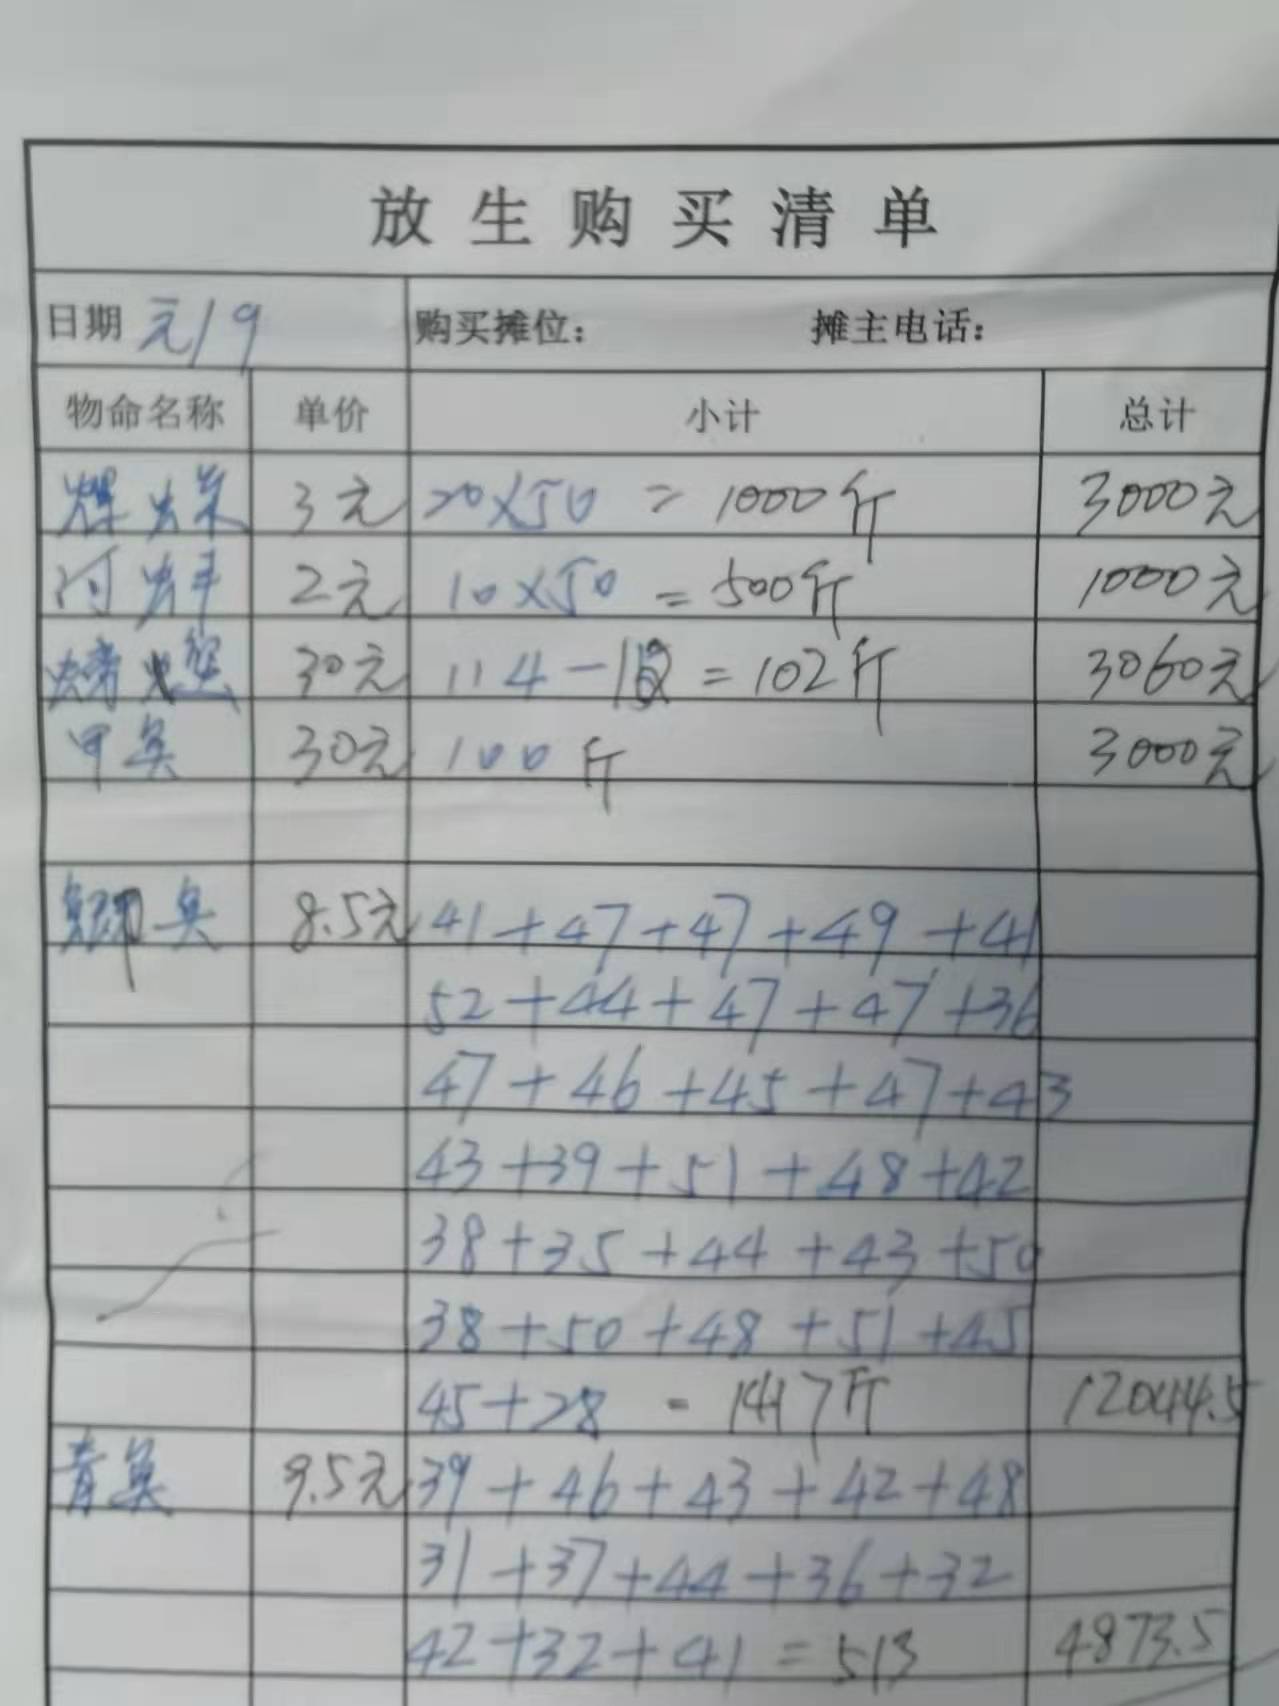 放生购买清单
日期 元/9 购买摊位： 摊主电话：
物命名称 单价 小计 总计
3元 20×50 = 1000斤 3000元
河蚌 2元 10×50 = 500斤 1000元
30元 114- = 102斤 3060元
甲鱼 30元 100斤 3000元
鱼 8.5元 41+47+47+49+41
52+44+47+47+36
47+46+45+47+43
43+39+51+48+42
38+35+44+43+50
38+50+48+51+45
45+28 = 1417斤 12044.5
青鱼 9.5元 39+46+43+42+48
31+37+44+36+32
42+32+41 = 513 4873.5